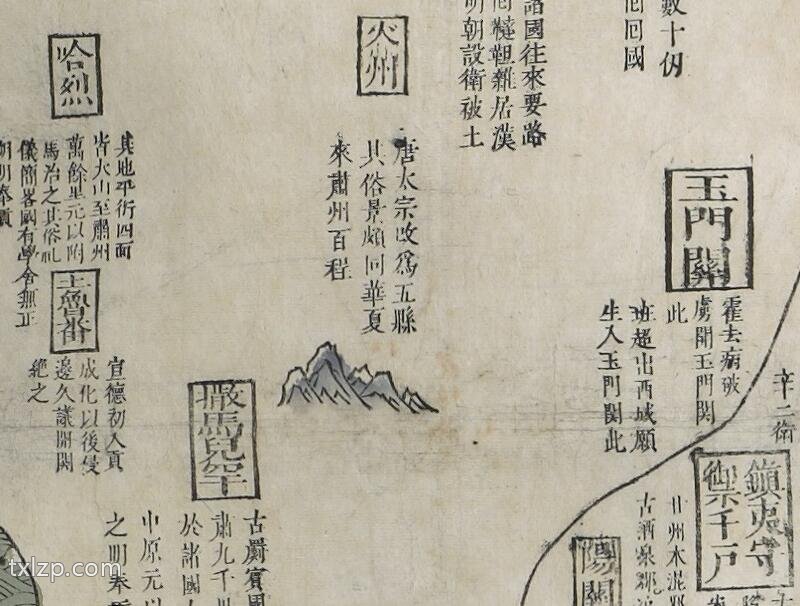 數十仞
囘囘國
諸國往來要路
囘韃靼雜居漢
明朝設衛被土
火州
唐太宗改爲五縣
其俗景頗同華夏
來肅州百程
哈烈
其地平衍四面
皆大山至肅州
萬餘里元以附
馬治之其俗祀
儀簡畧國有學舍無正
朔明奉貢
土魯番
宣德初入貢
成化以後侵
邊久議閉関
絶之
撒馬兒罕
古罽賓
肅九千
於諸國
中原元以
之明奉
玉門關
霍去病破
虜開玉門関
此
班超出西域願
生入玉門関此
辛二衛
鎮夷守
禦千戶
甘州木混
古酒泉郡
陽關
txlzp.com